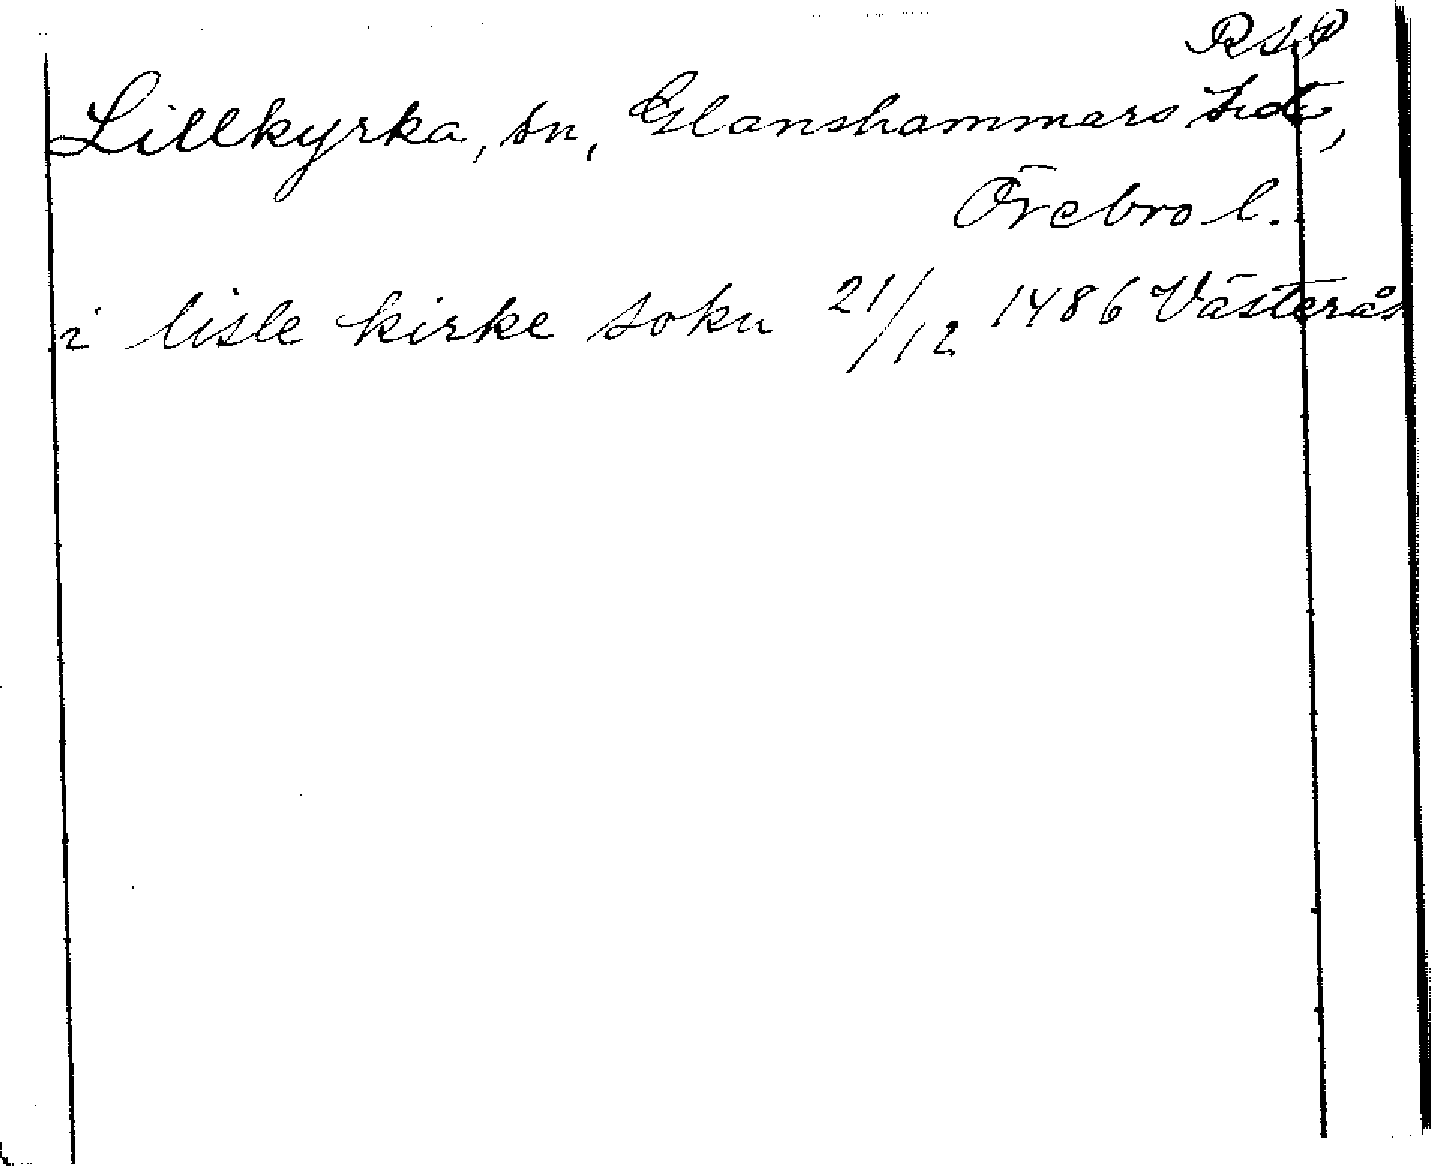 RSP
Lillkyrka, sn, Glanshammars hd,
Örebro l.
i lisle kirke soku 21/12 1486 Västerås